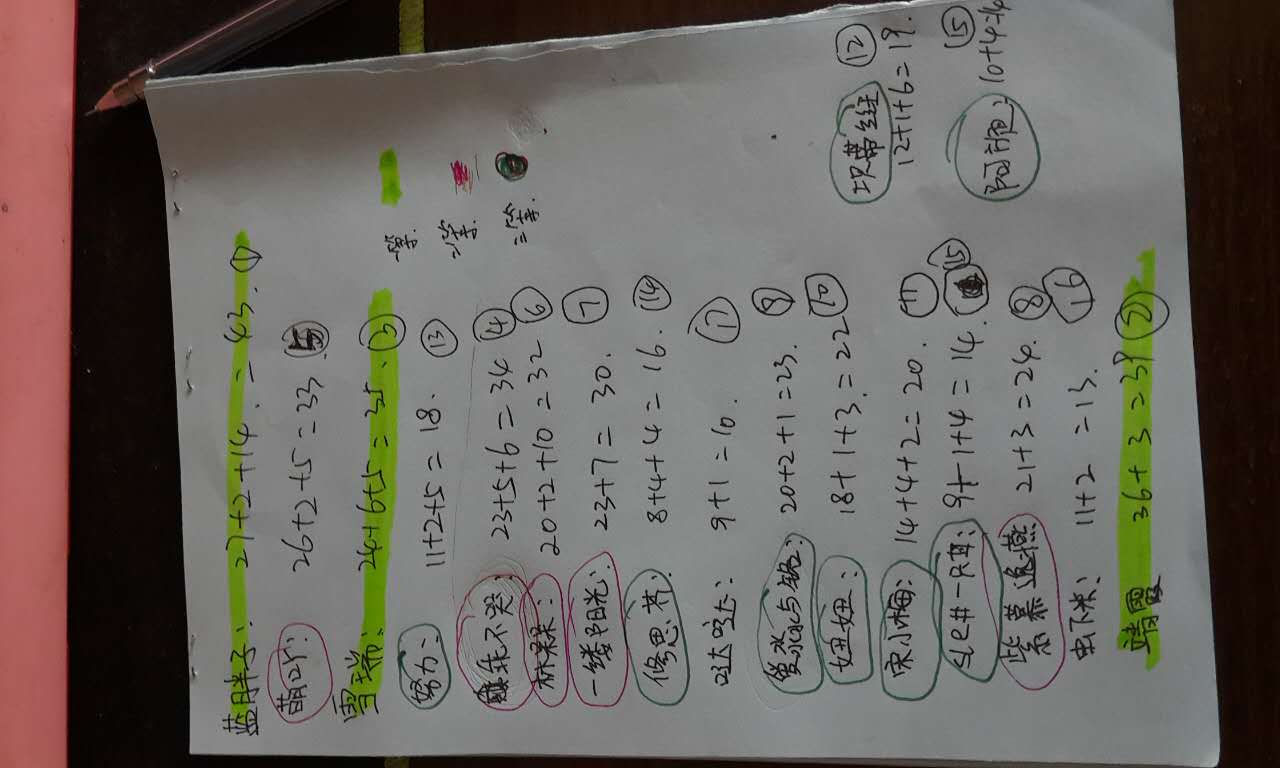 蓝胖子: 27+2+14.=43. ①
萌叶: 26+2+5=33. ⑤
雪瑞: 24+6+5=35. ③
努力: 11+2+5=18. ⑬
乖不哭: 23+5+6=34 ④
林果果: 20+2+10=32 ⑥
一缕阳光: 23+7=30. ⑦
修思君: 8+4+4=16. ⑭
哒哒: 9+1=10. ⑰
萤冰与铭: 20+2+1=23. ⑧
妞妞: 18+1+3.=22 ⑩
宋小梅: 14+4+2=20. ⑪
一只耳: 9+1+4=14. ⑮
紫慕追燕 21+3=24. ⑧
虫下米: 11+2=13. ⑯
靖霞 36+3=39 ②
一等.
二等.
三等.
⑫
12+1+6=19.
⑮
10+4=14